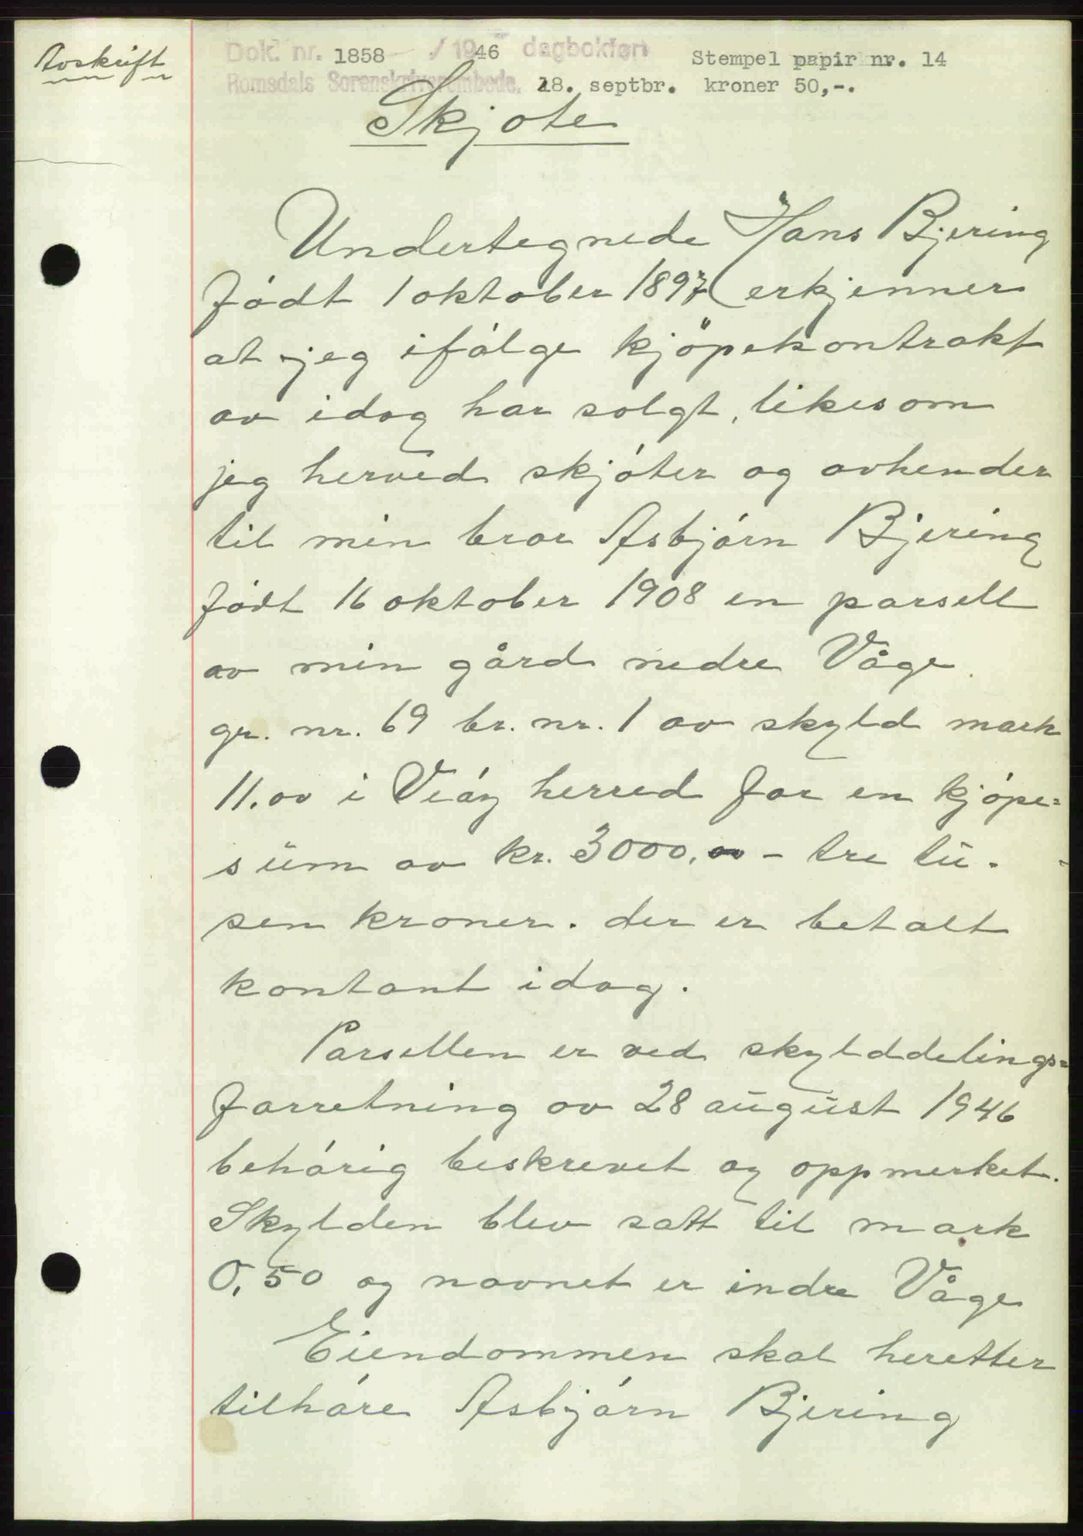 Avskrift
Dok. nr. 1858 / 1946 dagbokført
Stempel papir nr. 14
Romsdals Sorenskriverembede, 18. septbr. kroner 50,-.
Skjøte
Undertegnede Hans Bjering
født 1 oktober 1897 erkjenner
at jeg ifølge kjöpekontrakt
av idag har solgt, likesom
jeg herved skjøter og avhender
til min bror Asbjørn Bjering
født 16 oktober 1908 en parsell
av min gård nedre Våge
gr. nr. 69 br. nr. 1 av skyld mark
11.00 i Veøy herred for en kjøpe=
sum av kr. 3000.00 - tre tu-
sen kroner. der er betalt
kontant idag.
Parsellen er ved skylddelings=
forretning av 28 august 1946
behørig beskrevet og oppmerket.
Skylden blev satt til mark
0,50 og navnet er indre Våge
Eiendommen skal heretter
tilhøre Asbjørn Bjering